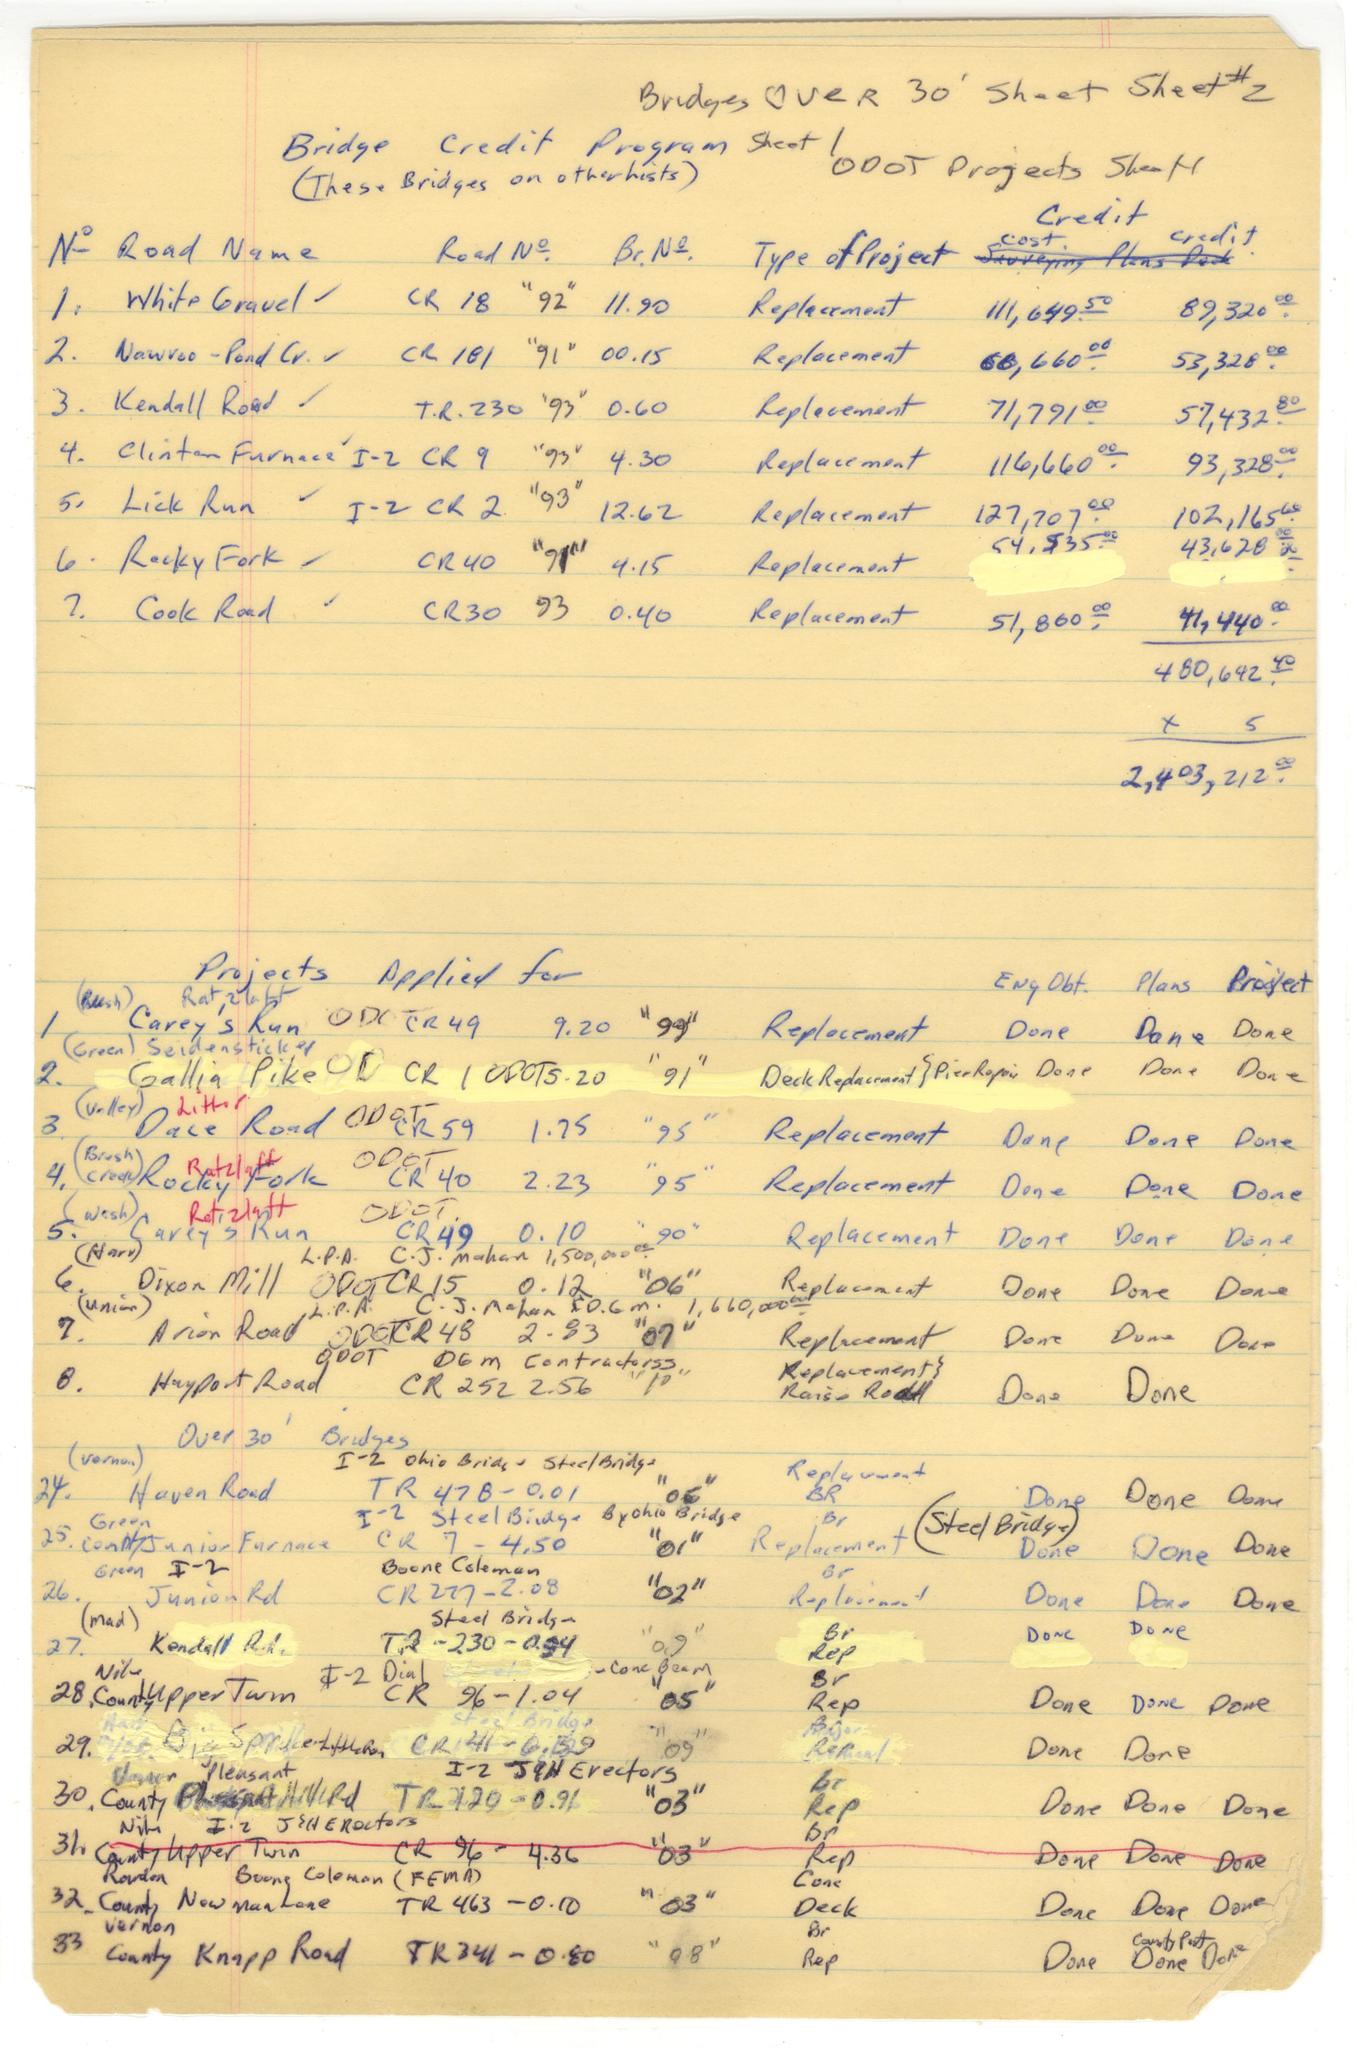 Bridges OVER 30' Sheet Sheet #2
Bridge Credit Program Sheet 1
(These Bridges on other lists) ODOT Projects Sheet 1
Credit
Nº Road Name Road Nº. Br. Nº. Type of Project Cost. Credit
Surveying Plans Deck
1. White Gravel ✓ CR 18 "92" 11.90 Replacement 111,649.50 89,320.00
2. Nawvoo - Pond Cr. ✓ CR 181 "91" 00.15 Replacement 66,660.00 53,328.00
3. Kendall Road ✓ T.R. 230 "93" 0.60 Replacement 71,791.00 57,432.80
4. Clinton Furnace ✓ I-2 CR 9 "93" 4.30 Replacement 116,660.00 93,328.00
5. Lick Run ✓ I-2 CR 2 "93" 12.62 Replacement 127,707.00 102,165.60
6. Rocky Fork ✓ CR 40 "91" 4.15 Replacement 54,535.00 43,628.00
7. Cook Road ✓ CR30 93 0.40 Replacement 51,800.00 41,440.00
480,642.40
x 5
2,403,212.00
Projects Applied for Eng Obt. Plans Project
(Rush) Ratzlaff
1 Carey's Run ODOT CR 49 9.20 "99" Replacement Done Done Done
(Green) Seidensticker
2. Gallia Pike OD CR 1 ODOT 5.20 "91" Deck Replacement } Pier Repair Done Done Done
(Valley) Litter
3. Dace Road ODOT CR 59 1.75 "95" Replacement Done Done Done
(Brush Creek) Ratzlaff ODOT
4. Rocky Fork CR 40 2.23 "95" Replacement Done Done Done
(Wash.) Ratzlaff ODOT
5. Carey's Run CR 49 0.10 "90" Replacement Done Done Done
(Harr) L.P.A. C.J. Mahan 1,500,000.00
6. Dixon Mill ODOT CR 15 0.12 "06" Replacement Done Done Done
(Union) L.P.A. C.J. Mahan 1,660,000.00
7. Arion Road ODOT CR 48 2.83 "07" Replacement Done Done Done
ODOT DGM Contractorss Replacement }
8. Hayport Road CR 252 2.56 "10" Raise Road Done Done
Over 30' Bridges
(Vernon) I-2 Ohio Bridge Steel Bridge Replacement
24. Haven Road TR 478-0.01 "06" BR Done Done Done
Green I-2 Steel Bridge By Ohio Bridge Br (Steel Bridge)
25. County Junior Furnace CR 7 - 4.50 "01" Replacement Done Done Done
Green I-2 Boone Coleman Br
26. Junior Rd CR 277-2.08 "02" Replacement Done Done Done
(mad) Steel Bridge Br
27. Kendall Rd. TR - 230 - 0.94 "09" Rep Done Done
Nile I-2 Dial - Conc Beam Br
28. County Upper Twin CR 96-1.04 "05" Rep Done Done Done
Steel Bridge Major
29. Big Spruce-Little Run CR 141 "09" Done Done
Pleasant I-2 J&H Erectors Br
30. County Hill Rd TR 220-0.96 "03" Rep Done Done Done
Nile I-2 J&H Erectors Br
31. County Upper Twin CR 96 - 4.36 "03" Rep Done Done Done
Rardon Boone Coleman (FEMA) Conc
32. County Newman Lane TR 463 - 0.10 "03" Deck Done Done Done
Vernon Br County Port
33 County Knapp Road TR 341 - 0.80 "98" Rep Done Done Done